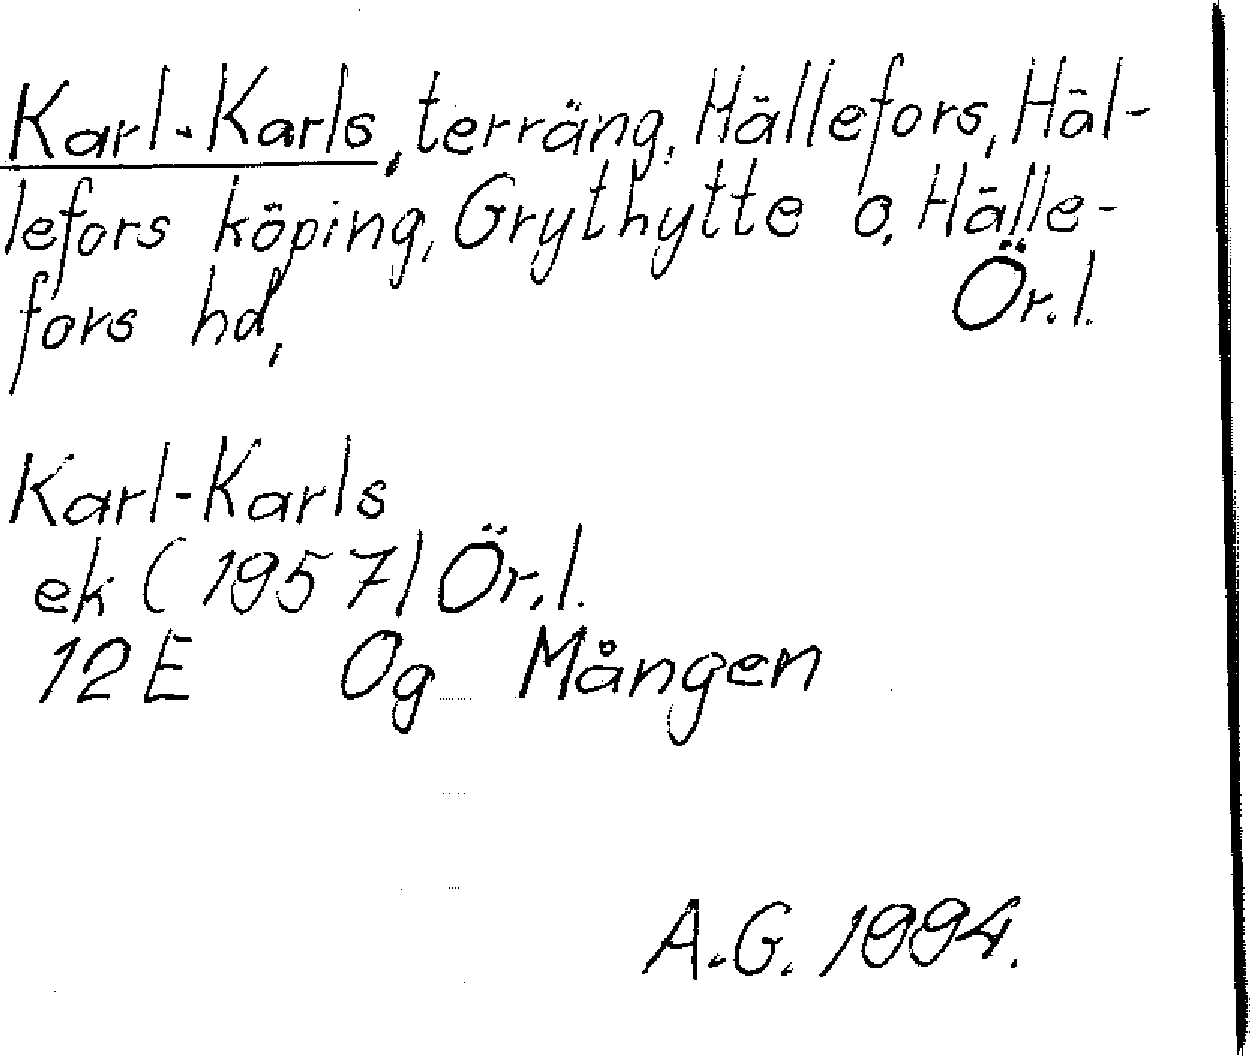 Karl-Karls, terräng, Hällefors, Häl-
lefors köping, Grythytte o. Hälle-
fors hd, Ör. l.
Karl-Karls
ek (1957) Ör. l.
12E 0g Mången
A.G. 1994.